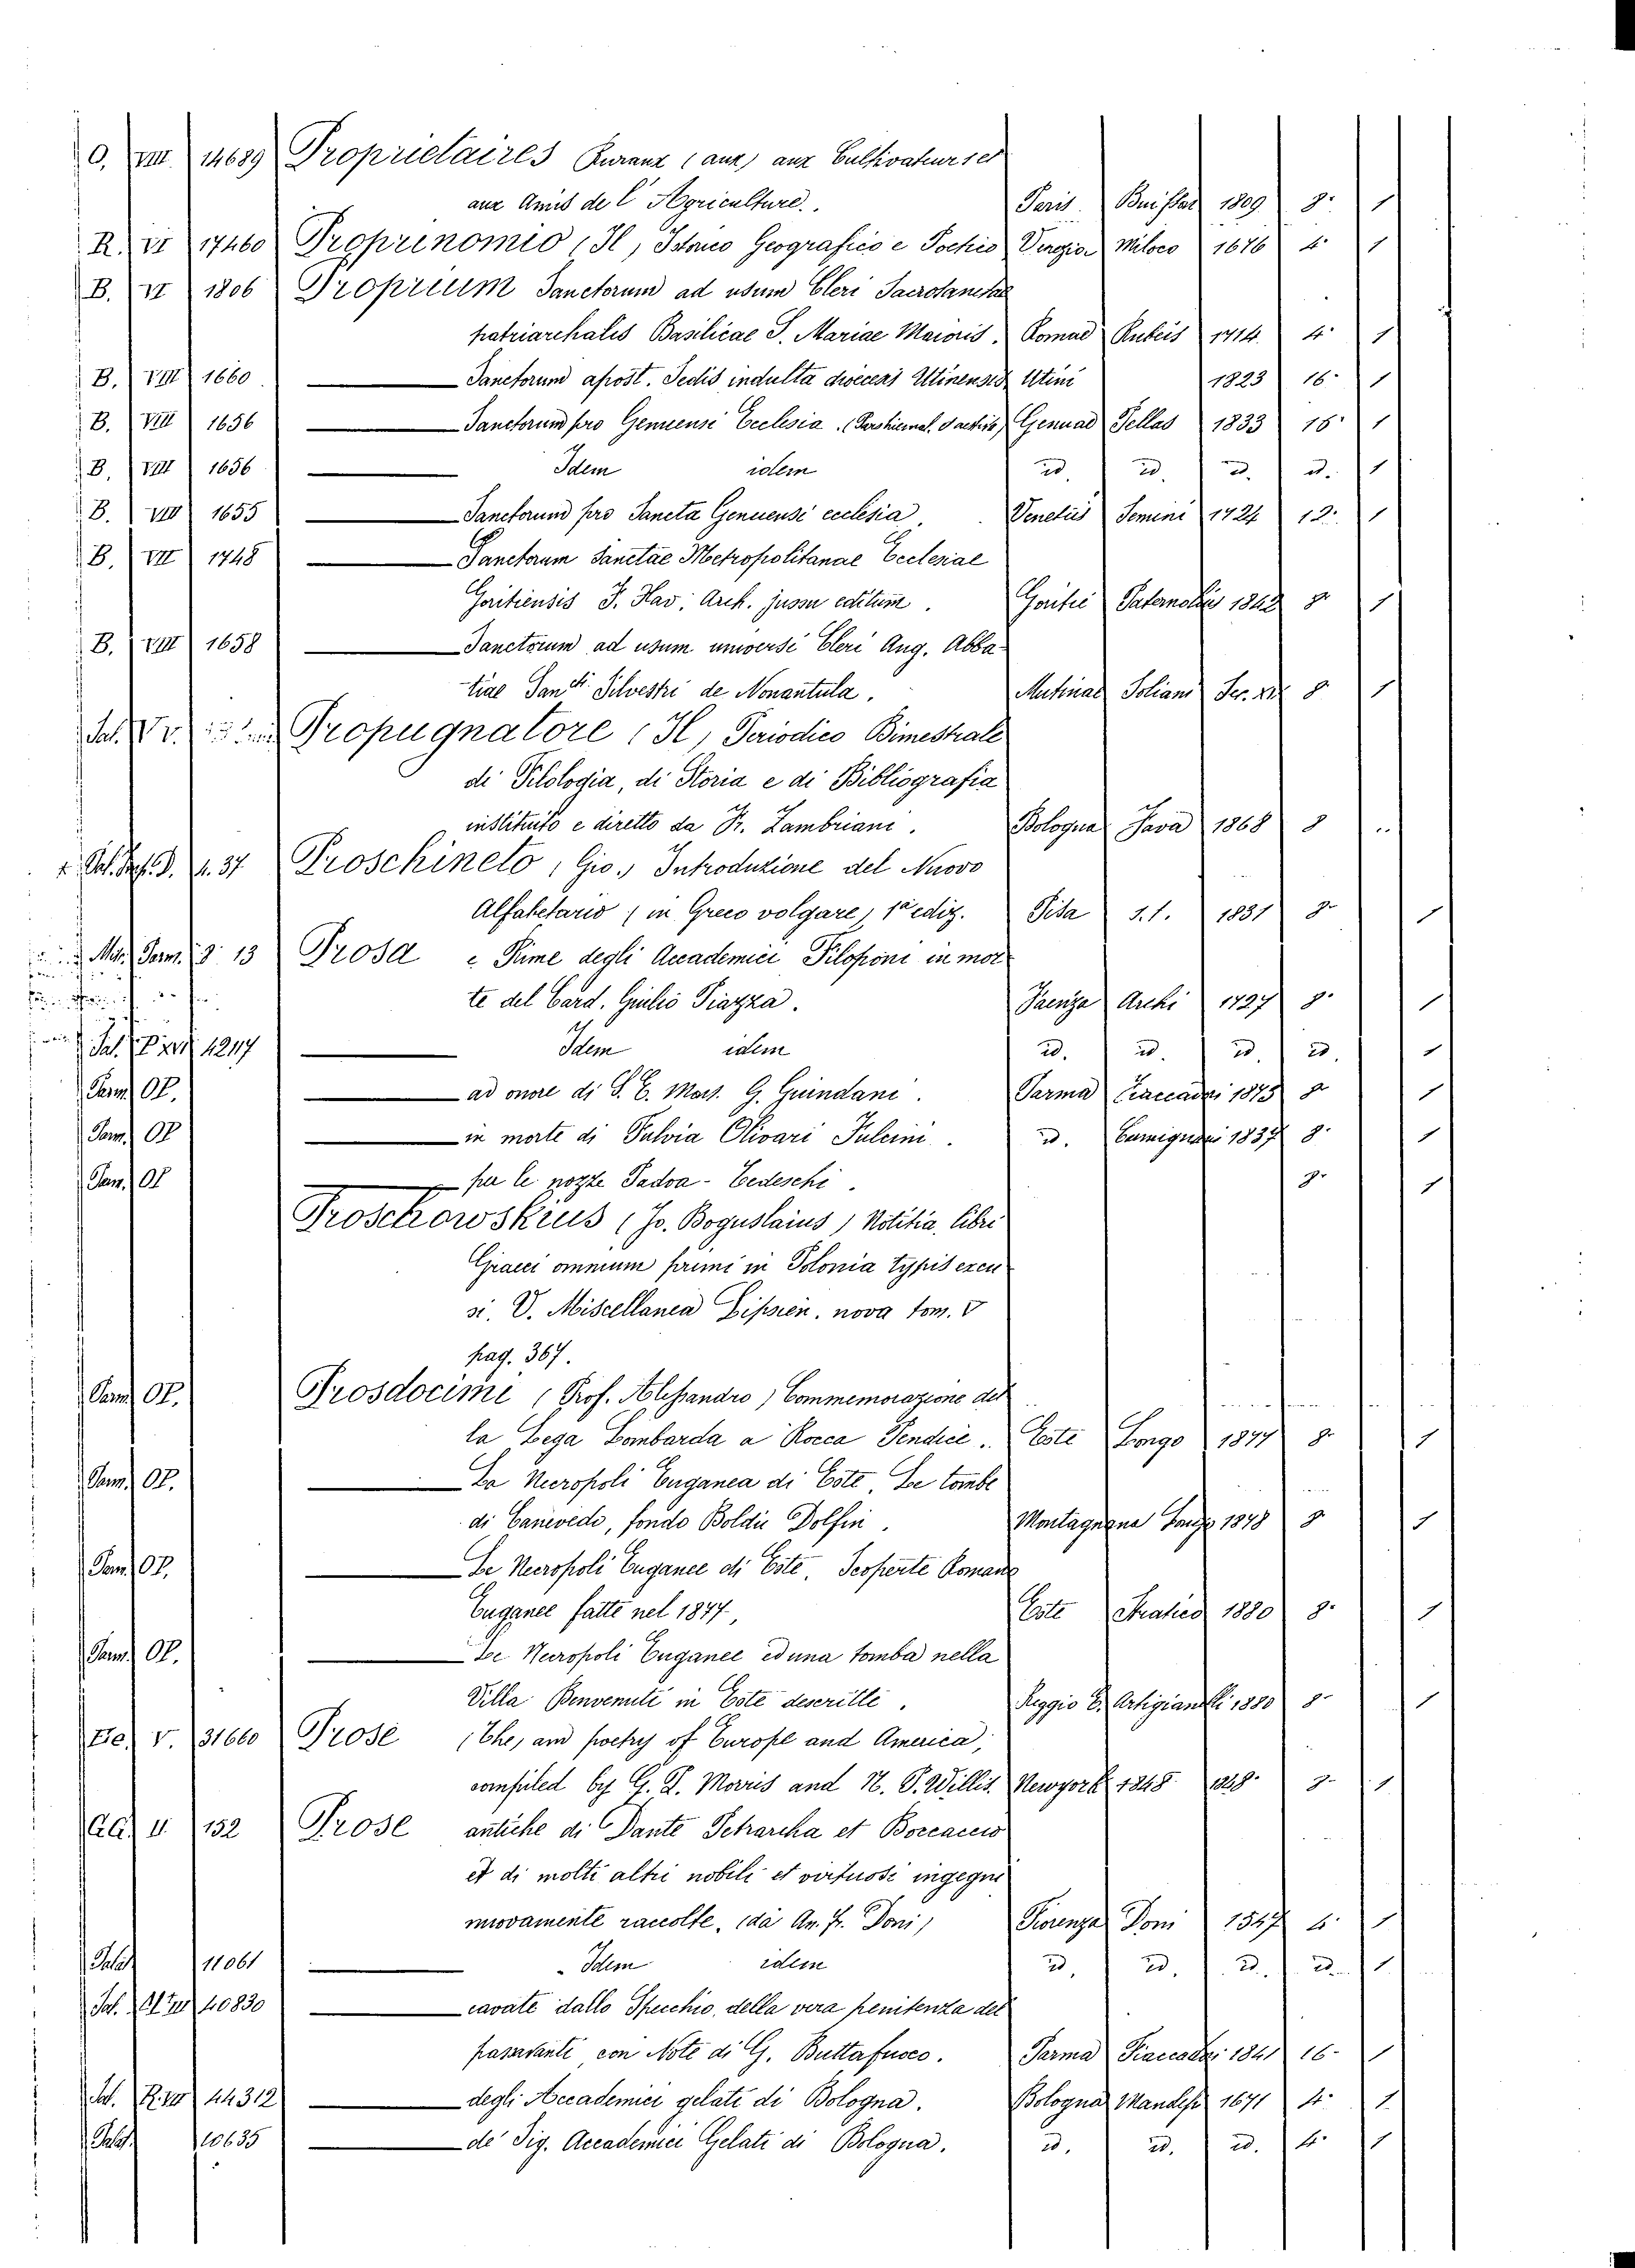 O. VIII. 14689 Proprietaires Ruraux (aux) aux Cultivateurs et
aux Amis de l'Agriculture. Paris. Buisson 1809 8. 1
R. VI 17460 Proprinomio (Il, Istorico Geografico e Pochio Venezia Miloco 1676 4. 1
B. VI 1806 Proprium Sanctorum ad usum Cleri Sacrosanctae
patriarchalis Basilicae S. Mariae Maioris. Romae Rubeis 1714. 4. 1
B. VIII 1660 Sanctorum apost. Sedis indulta dioecesi Utinensis Utini 1823 16. 1
B. VIII 1656 Sanctorum pro Genuensi Ecclesia. Genuae Pellas 1833 16. 1
B. VIII 1656 Idem idem id. id. id. id. 1
B. VIII 1655 Sanctorum pro Sancta Genuensi ecclesia. Venetiis Semini 1724 12. 1
B. VII 1748 Sanctorum Sanctae Metropolitanae Ecclesiae
Goritiensis J. Hav. Arch. jussu editum. Goritie Paternolis 1842 8. 1
B. VIII 1658 Sanctorum ad usum universi Cleri Aug. Abba-
tiae Sancti Silvestri de Nonantula. Mutinae Soliani Sec. XIX 8 1
Sal. V. Propugnatore (Il, Periodico Bimestrale
di Filologia, di Storia e di Bibliografia
instituito e diretto da Fr. Zambrini. Bologna Fava 1868 8
Proschineto (Gio.) Introduzione del Nuovo
Alfabetario (in Greco volgare) 1ª ediz. Pisa s.t. 1831 8. 1
Parm. 13 Prosa e Rime degli Accademici Filoponi in mor
te del Card. Giulio Piazza. Faenza Archi 1727 8. 1
Sal. 4217 Idem idem id. id. id. id. 1
Parm. OP. ad onore di S. E. Mons. G. Guindani. Parma Fiaccadori 1875 8. 1
Parm. OP. in morte di Fulvia Olivari Fulcini. id. Carmignani 1837 8. 1
Parm. OP. per le nozze Padoa-Tedeschi. 8. 1
Proschowskius (Jo. Boguslaius) Notitia libri
Graeci omnium primi in Polonia typis excu
si. V. Miscellanea Lipsien. nova tom. V
pag. 367.
Parm. OP. Prosdocimi (Prof. Alessandro) Commemorazione del
la Lega Lombarda a Rocca Pendice. Este Longo 1877 8. 1
Parm. OP. La Necropoli Euganea di Este. Le tombe
di Canevedo, fondo Boldù Dolfin. Montagnana Longo 1878 8 1
Parm. OP. Le Necropoli Euganee di Este. Scoperte Romane
Euganee fatte nel 1877. Este Stratico 1880 8. 1
Parm. OP. Le Necropoli Euganee ed una tomba nella
Villa Benvenuti in Este descritte. Reggio E. Artigianelli 1880 8. 1
V. 31660 Prose (The, and poetry of Europe and America,
compiled by G. P. Morris and N. P. Willis. Newyork 1848 1848. 8. 1
II 152 Prose antiche di Dante Petrarcha et Boccaccio
et di molti altri nobili et virtuosi ingegni
nuovamente raccolte, (da An. Fr. Doni) Fiorenza Doni 1547 4. 1
Palat. 11061 Idem idem id. id. id. id. 1
Sal. 40830 cavate dallo Specchio della vera penitenza del
passavanti con Note di G. Buttafuoco. Parma Fiaccadori 1841 16. 1
Sal. 44312 degli Accademici gelati di Bologna. Bologna Manolessi 1671 4. 1
Palat. 10635 de' Sig. Accademici Gelati di Bologna. id. id. id. 4. 1